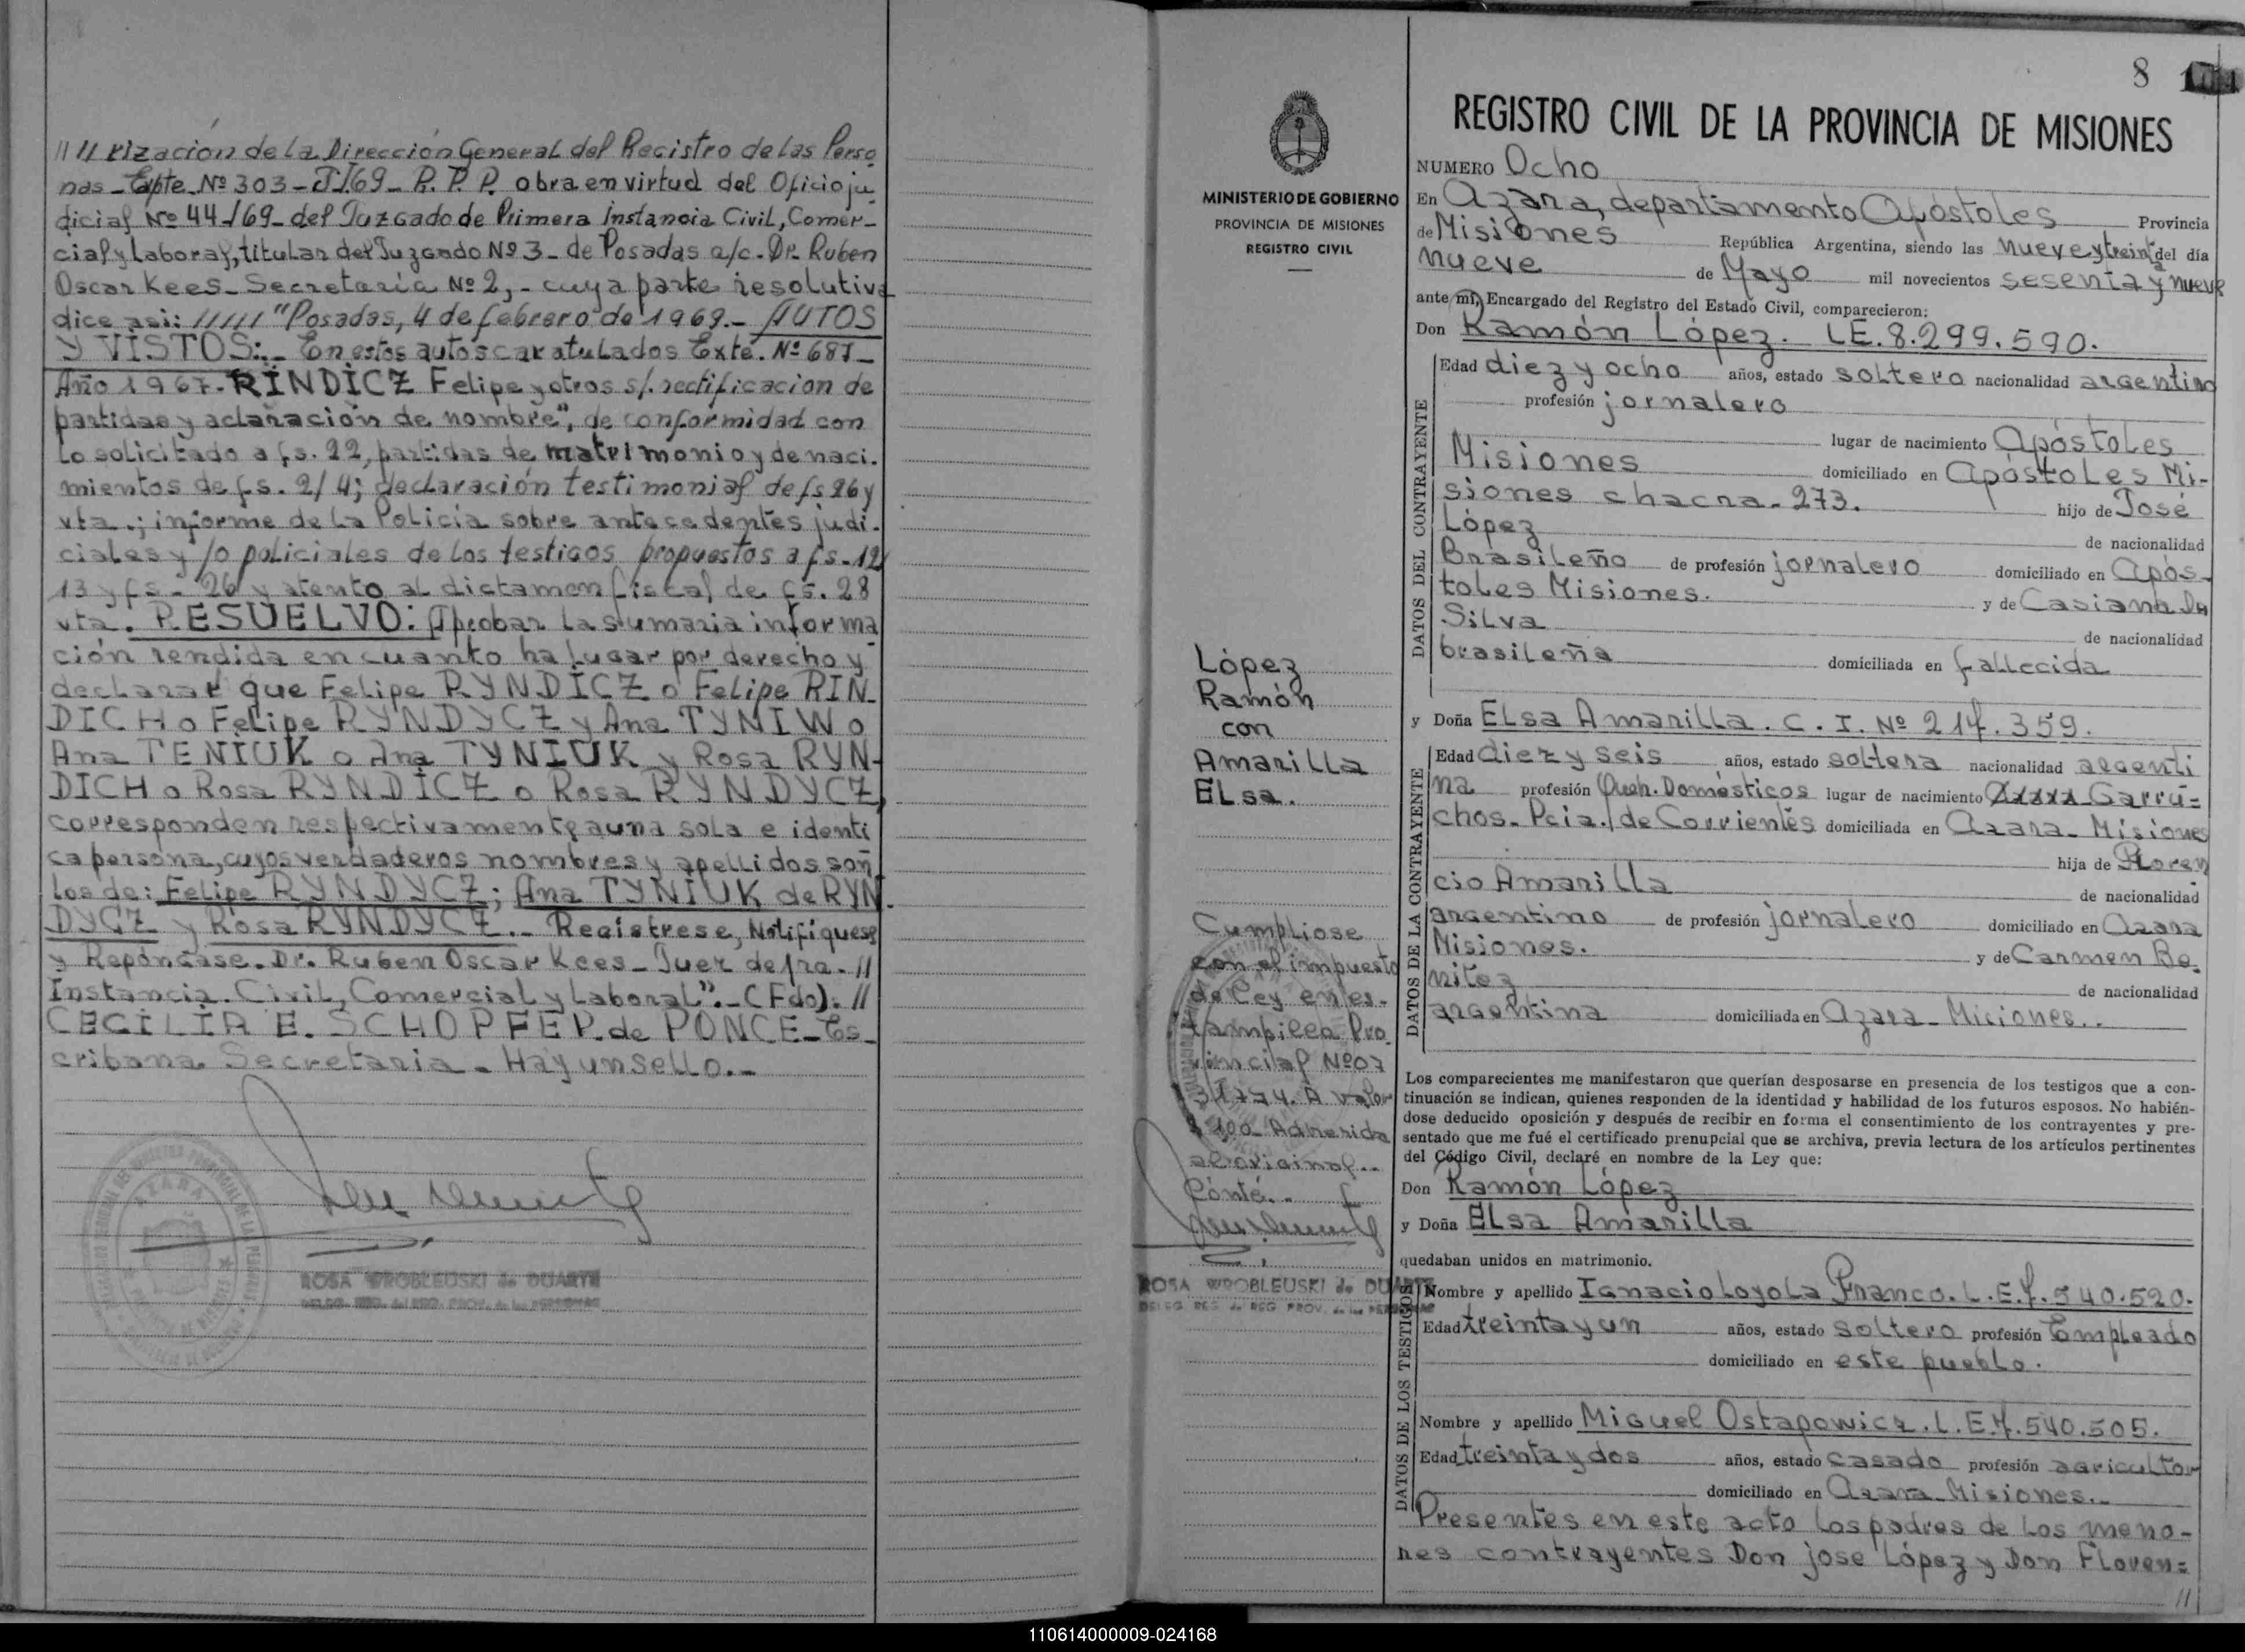 // // rización de la Dirección General del Registro de las Perso
nas - Expte. Nº 303 - J/69 - R. P. P. obra en virtud del Oficio ju
dicial Nº 44/69 - del Juzgado de Primera Instancia Civil, Comer-
cial y Laboral, titular del Juzgado Nº 3 - de Posadas a/c. Dr. Ruben
Oscar Kees - Secretaría Nº 2, - cuya parte resolutiva
dice asi: ///// "Posadas, 4 de febrero de 1969.- AUTOS
Y VISTOS:- En estos autos caratulados Exte. Nº 687 -
Año 1967 - RINDICZ Felipe y otros s/. rectificacion de
partidas y aclaración de nombre", de conformidad con
lo solicitado a fs. 22, partidas de matrimonio y de naci.
mientos de fs. 2/4; declaración testimonial de fs 26 y
vta.; informe de la Policía sobre antecedentes judi.
ciales y/o policiales de los testigos propuestos a fs. 12/
13 y fs. 26 y atento al dictamen fiscal de fs. 28
vta. RESUELVO: Aprobar la sumaria informa
ción rendida en cuanto ha lugar por derecho y
declarar que Felipe RYNDICZ o Felipe RIN-
DICH o Felipe RYNDYCZ y Ana TYNIW o
Ana TENIUK o Ana TYNIUK y Rosa RYN-
DICH o Rosa RYNDICZ o Rosa RYNDYCZ,
corresponden respectivamente a una sola e identi
ca persona, cuyos verdaderos nombres y apellidos son
los de: Felipe RYNDYCZ; Ana TYNIUK de RYN.
DYCZ y Rosa RYNDYCZ.- Registrese, Notifiquese
y Repóngase. Dr. Ruben Oscar Kees - Juez de 1ra. //
Instancia. Civil, Comercial y Laboral".- (Fdo). //
CECILIA E. SCHOPFER de PONCE - Es_
cribana Secretaria - Hay un sello.-
ROSA WROBLEUSKI de DUARTE
8
MINISTERIO DE GOBIERNO
PROVINCIA DE MISIONES
REGISTRO CIVIL
López
Ramón
con
Amarilla
Elsa.
Cumpliose
con el impuesto
de Ley en es-
tampilla Pro
vincial Nº 07
31774. A valor
$ 100 - Adherida
al original..
Conté..
ROSA WROBLEUSKI de DUARTE
DELEG. REG. de REG. PROV. de las PERSONAS
REGISTRO CIVIL DE LA PROVINCIA DE MISIONES
NUMERO Ocho
En Azara, departamento Apóstoles Provincia
de Misiones República Argentina, siendo las nueve y treinta del día
nueve de Mayo mil novecientos sesenta y nueve
ante mí, Encargado del Registro del Estado Civil, comparecieron:
Don Ramón López. L.E. 8.299.590.
DATOS DEL CONTRAYENTE
Edad diez y ocho años, estado soltero nacionalidad argentino
profesión jornalero
lugar de nacimiento Apóstoles
Misiones domiciliado en Apóstoles Mi-
siones chacra - 273. hijo de José
López de nacionalidad
Brasileño de profesión jornalero domiciliado en Após-
toles Misiones. y de Casiana Da
Silva de nacionalidad
brasileña domiciliada en fallecida
y Doña Elsa Amarilla. C. I. Nº 217.359.
DATOS DE LA CONTRAYENTE
Edad diez y seis años, estado soltera nacionalidad argenti
na profesión Queh. Domésticos lugar de nacimiento Garru=
chos - Pcia. de Corrientes domiciliada en Azara - Misiones
hija de Floren
cio Amarilla de nacionalidad
argentino de profesión jornalero domiciliado en Azara
Misiones. y de Carmen Be.
nitez de nacionalidad
argentina domiciliada en Azara - Miciones..
Los comparecientes me manifestaron que querían desposarse en presencia de los testigos que a con-
tinuación se indican, quienes responden de la identidad y habilidad de los futuros esposos. No habién-
dose deducido oposición y después de recibir en forma el consentimiento de los contrayentes y pre-
sentado que me fué el certificado prenupcial que se archiva, previa lectura de los artículos pertinentes
del Código Civil, declaré en nombre de la Ley que:
Don Ramón López
y Doña Elsa Amarilla
quedaban unidos en matrimonio.
DATOS DE LOS TESTIGOS
Nombre y apellido Ignacio Loyola Franco. L.E. 7.540.520.
Edad treinta y un años, estado soltero profesión Empleado
domiciliado en este pueblo.
Nombre y apellido Miguel Ostapowicz. L.E. 7.540.505.
Edad treinta y dos años, estado casado profesión agricultor
domiciliado en Azara - Misiones..
Presentes en este acto los padres de los meno-
res contrayentes Don jose López y Don Floren=
//
110614000009-024168